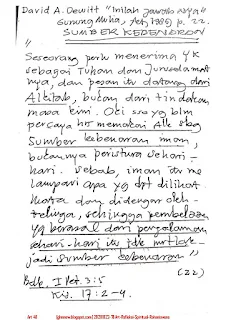 David A. Dewitt "Inilah jawabannya"
Gunung Mulia, Jkt, 1985) p. 22.
SUMBER KEBENARAN
"Seseorang perlu menerima YK
sebagai Tuhan dan Juruselamat
nya, dan pesan itu datang dari
Alkitab, bukan dari tindakan
masa kini. Oki ssg yg blm
percaya hrs memakai Alk sbg
Sumber kebenaran iman,
bukannya peristiwa sehari-
hari. Sebab, iman itu me
lampaui apa yg dpt dilihat
mata dan didengar oleh
telinga, sehingga pembelaan
yg berasal dari pengalaman
sehari-hari itu tdk mutlak
jadi sumber kebenaran"
(22)
Bdk. I Pet. 3:5
Kis. 17:2-4.